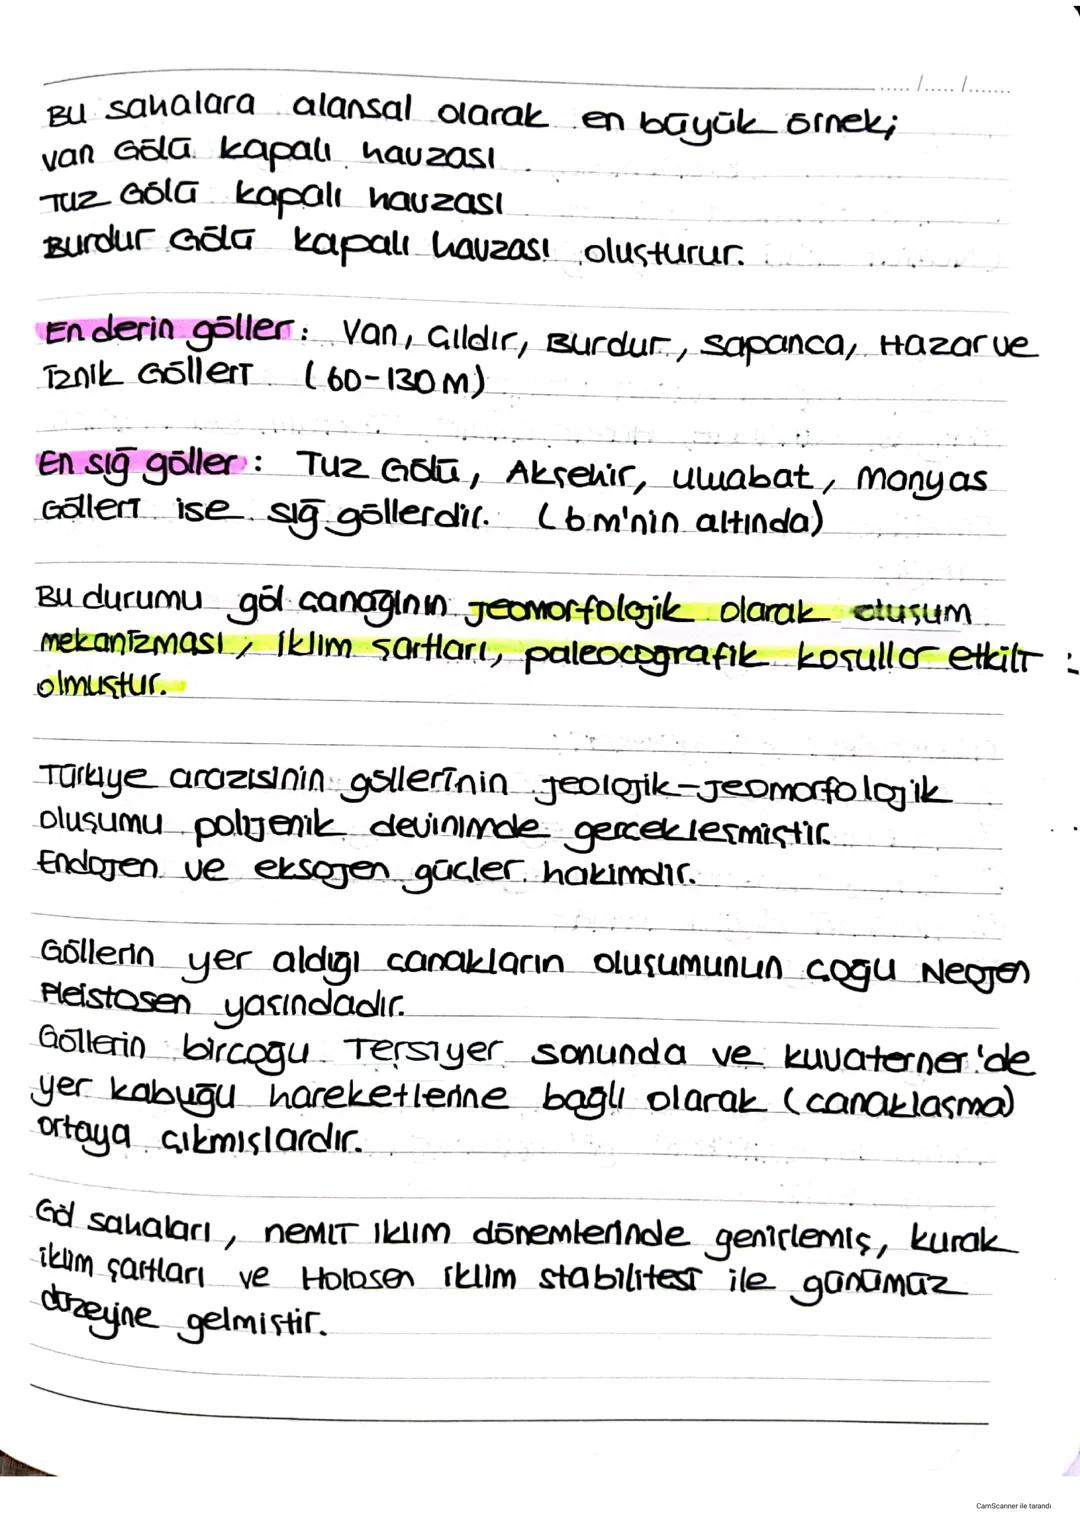 ...../...../.......
Bu sahalara alansal olarak en büyük örnek;
Van Gölü kapalı havzası
Tuz Gölü kapalı havzası
Burdur Gölü kapalı havzası oluşturur.
En derin göller: Van, Çıldır, Burdur, Sapanca, Hazar ve
İznik Gölleri (60-130 M)
En sığ göller: Tuz Gölü, Akşehir, Uluabat, Manyas
Gölleri ise sığ göllerdir. (6 m'nin altında)
Bu durumu göl çanağının Jeomorfolojik olarak oluşum
mekanizması, iklim şartları, paleocoğrafik koşullar etkili :
olmuştur.
Türkiye arazisinin göllerinin jeolojik-Jeomorfolojik
oluşumu polijenik devinimde gerçekleşmiştir.
Endojen ve eksojen güçler hakimdir.
Göllerin yer aldığı çanakların oluşumunun çoğu Neojen
Pleistosen yaşındadır.
Göllerin birçoğu Tersiyer sonunda ve kuvaterner'de
yer kabuğu hareketlerine bağlı olarak (çanaklaşma)
ortaya çıkmışlardır.
Göl sahaları, nemli iklim dönemlerinde genişlemiş, kurak
iklim şartları ve Holosen iklim stabilitesi ile günümüz
düzeyine gelmiştir.
CamScanner ile tarandı